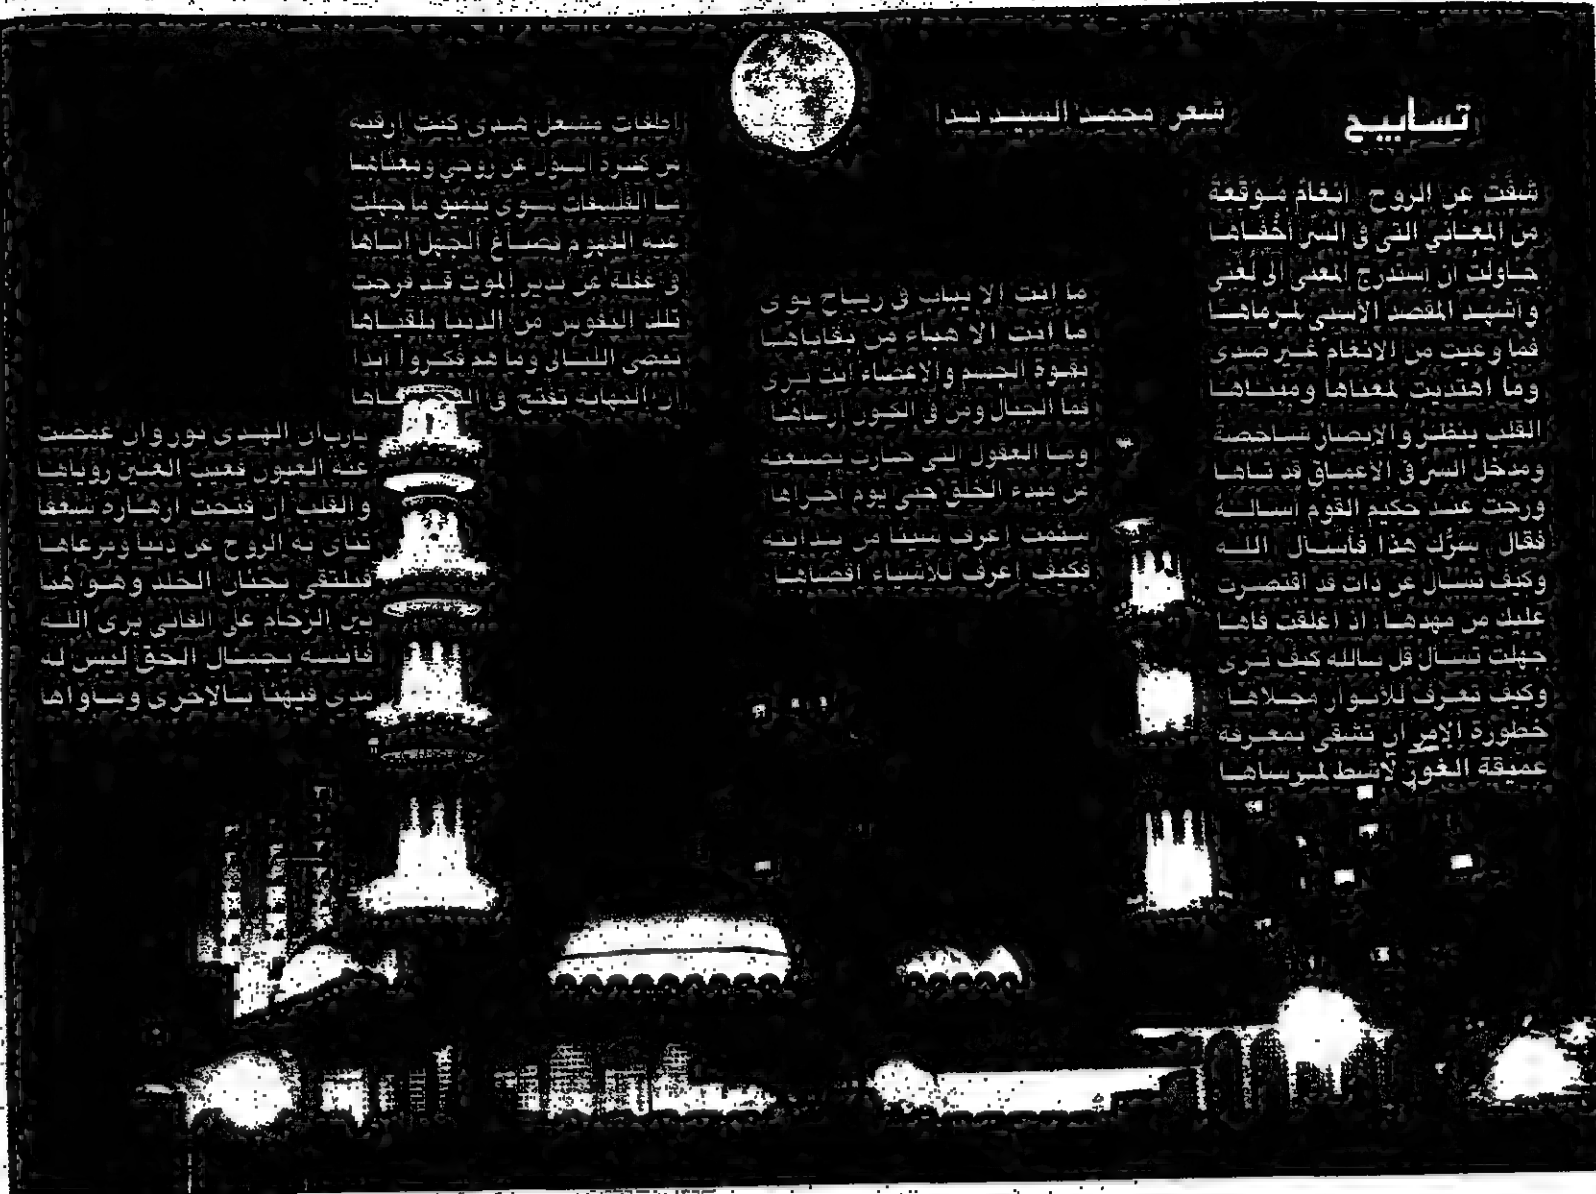 تسابيح
شعر محمد السيد ندا
شفت عن الروح أنغام موقعة
من المعاني التي في السر أخفاها
حاولت أن أستدرج المعنى إلى لغتي
وأشهد المقصد الأسنى لمرماها
فما وعيت من الأنغام غير صدى
وما اهتديت لمعناها ومبناها
القلب ينظر والأبصار شاخصة
ومدخل السر في الأعماق قد تاها
ورحت عند حكيم القوم أسأله
فقال سرك هذا فأسأل الله
وكيف تسأل عن ذات قد اقتصرت
عليك من مهدها إذ أغلقت فاها
جهلت تسأل قل بالله كيف ترى
وكيف تعرف للأنوار مجلاها
خطورة الأمر أن تشقى بمعرفة
عميقة الغور لا شط لمرساها
ما أنت إلا يباب في رياح
ما أنت إلا هباء من بقاياها
بقوة الجسم والأعضاء أنت ترى
فما الجبال ومن في الكون أرساها
وما العقول التي حارت بصنعته
من مبدء الخلق حتى يوم أخراها
سئمت أعرف شيئا من بدايته
فكيف أعرف للأشياء أقصاها
أطفأت مشعل هدى كنت أرقبه
من كثرة السؤل عن روحي ومعناها
ما الفلسفات سوى تنميق ما جهلت
عنه الفهوم فصاغ الجهل إياها
في غفلة عن نذير الموت قد فرحت
تلك النفوس من الدنيا بلقياها
تمضى الليالى وما هم فكروا أبدا
أن النهاية تفتح في
يارب إن الهدى نور وإن غمضت
عنه العيون فعيب العين رؤياها
والقلب إن فتحت أزهاره شغفا
تنأى به الروح عن دنيا ومرعاها
فيلتقي بجنان الخلد وهو هنا
بين الزحام على الفاني يرى الله
فأنسه بجمال الحق ليس له
مدى فيهنا بالأخرى ومأواها